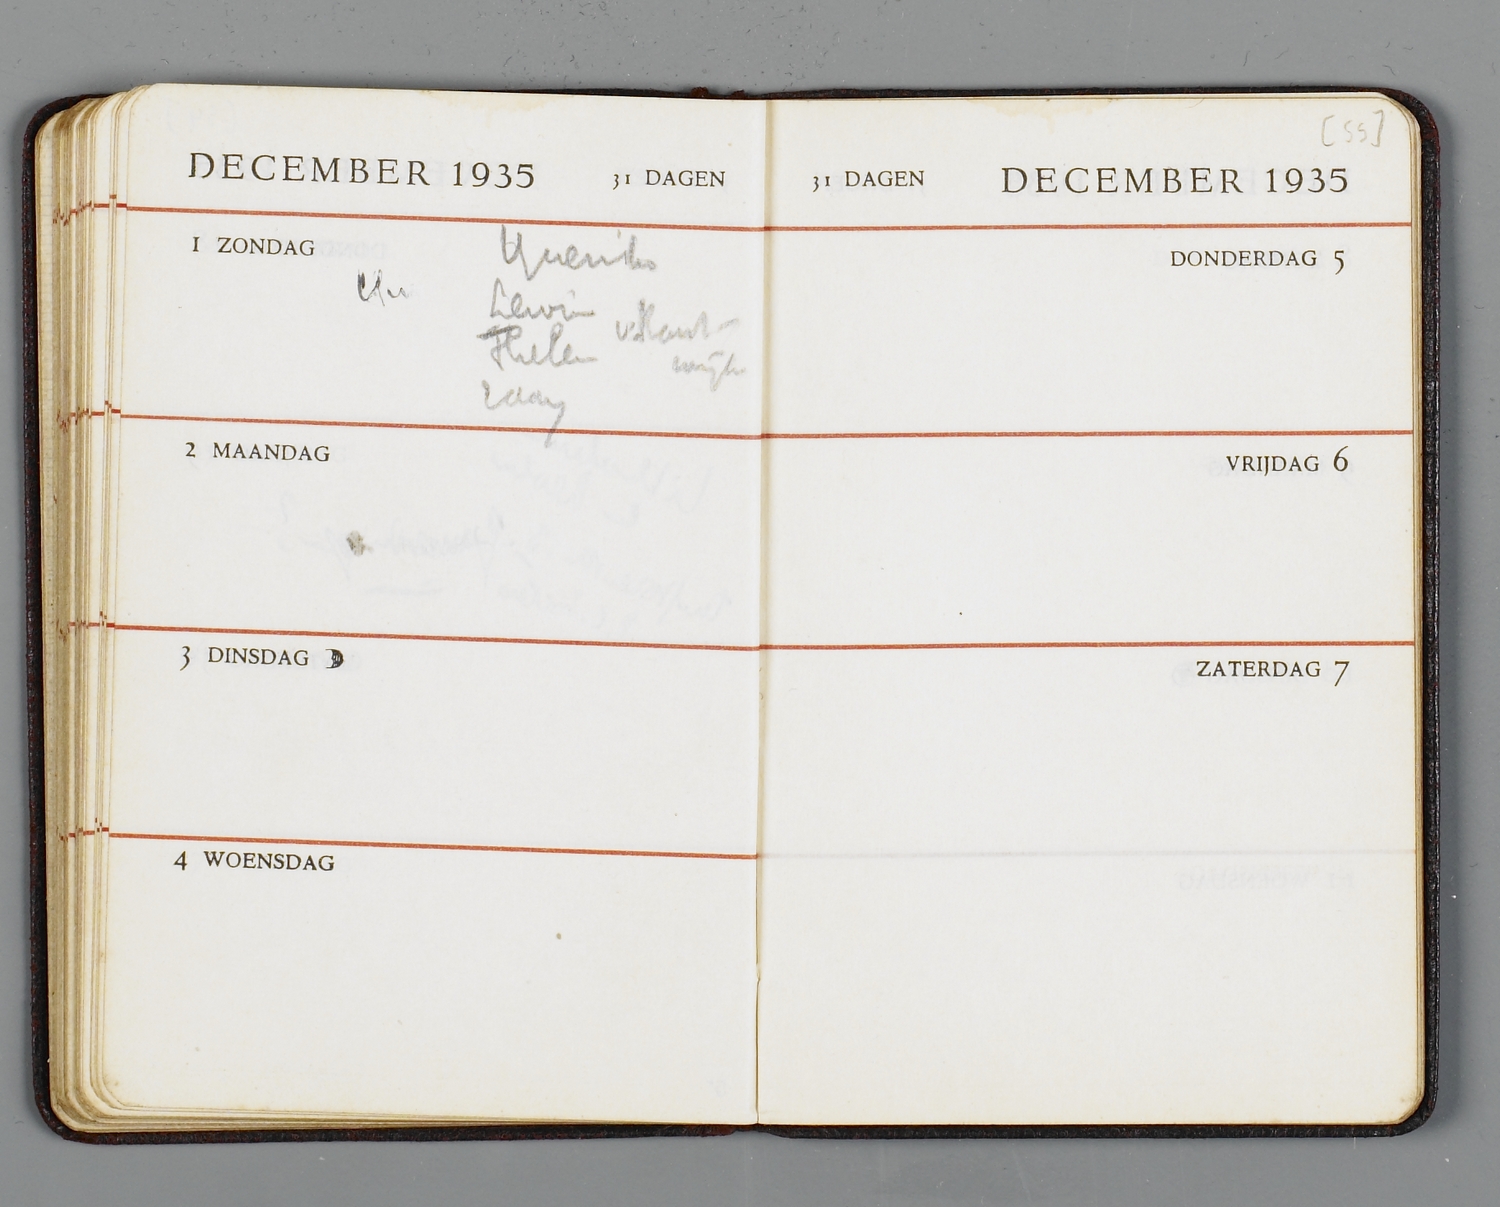 DECEMBER 1935 31 DAGEN
1 ZONDAG
Querido
Lewin
Helen
2 MAANDAG
3 DINSDAG
4 WOENSDAG
[55]
31 DAGEN DECEMBER 1935
DONDERDAG 5
VRIJDAG 6
ZATERDAG 7